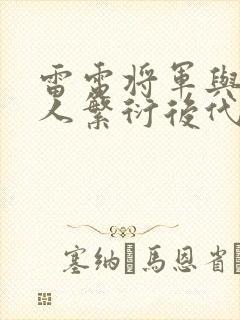 雷雷将軍與
人繁衍後代
塞納·馬恩省·